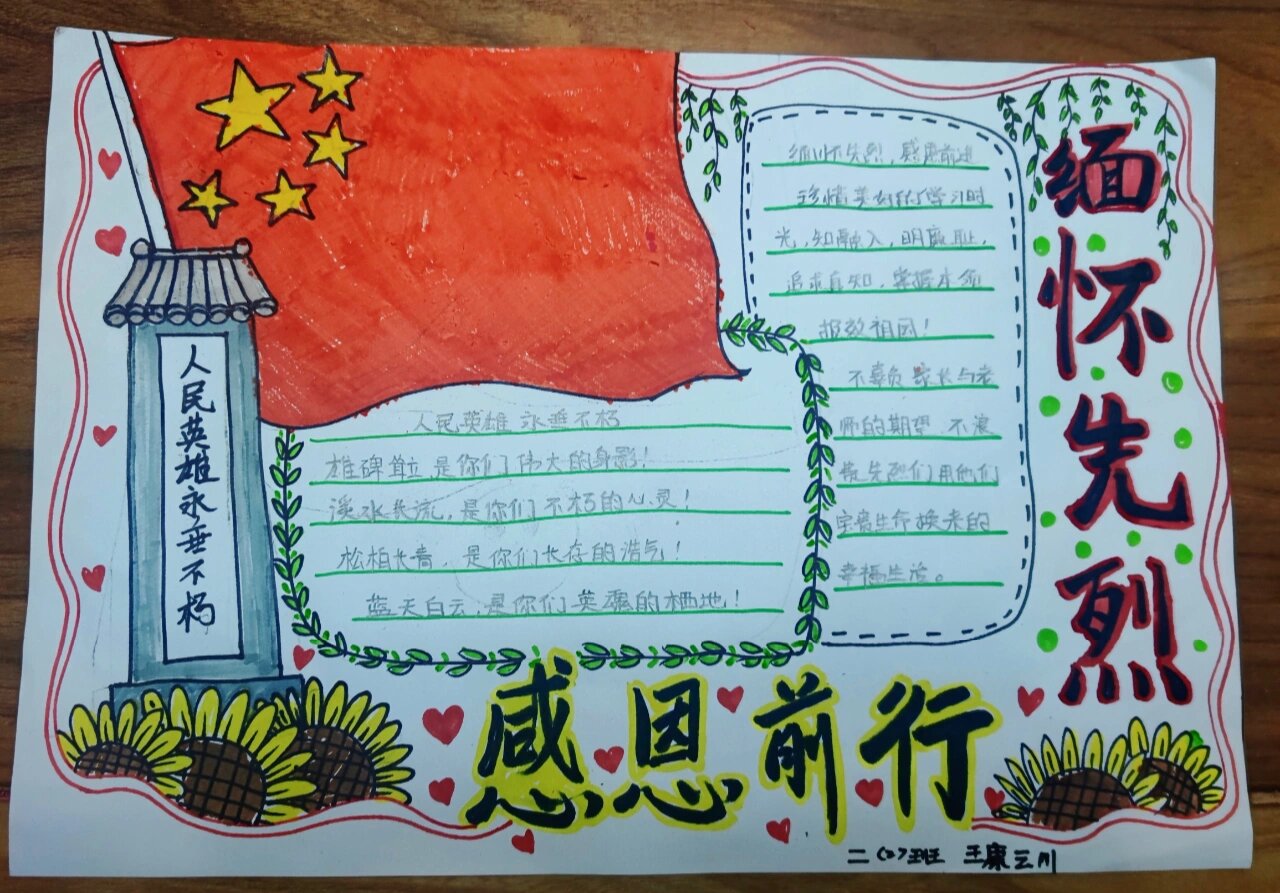 缅怀先烈
人民英雄永垂不朽
缅怀先烈，感恩前进
珍惜美好的学习时
光，知融入，明廉耻，
追求真知，掌握本领
报效祖国！
不辜负家长与老
师的期望，不浪
费先烈们用他们
宝贵生命换来的
幸福生活。
人民英雄 永垂不朽
雄碑耸立，是你们伟大的身影！
溪水长流，是你们不朽的心灵！
松柏长青，是你们长存的浩气！
蓝天白云，是你们英魂的栖地！
感恩前行
二 班 王康云川